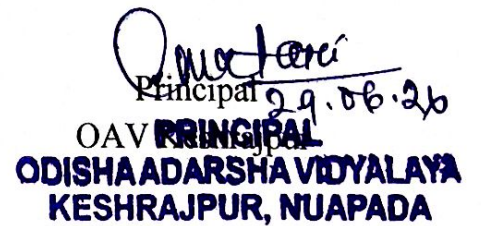 Principal
29.06.26
OAV Keshrajpur
PRINCIPAL
ODISHA ADARSHA VIDYALAYA
KESHRAJPUR, NUAPADA